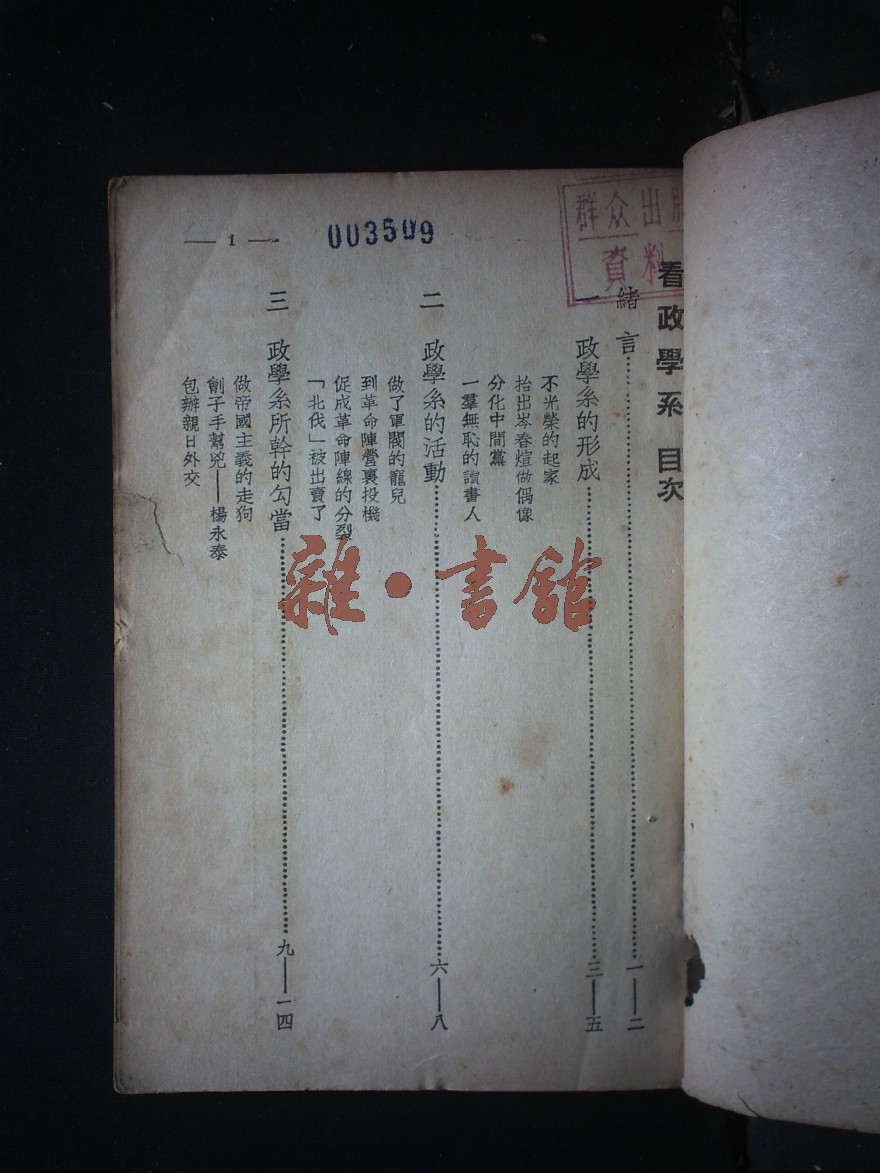 看政學系 目次
緒言……一——二
一 政學系的形成……三——五
不光榮的起家
抬出岑春煊做偶像
分化中間黨
一羣無恥的讀書人
二 政學系的活動……六——八
做了軍閥的寵兒
到革命陣營裏投機
促成革命陣線的分裂
「北伐」被出賣了
三 政學系所幹的勾當……九——一四
做帝國主義的走狗
劊子手幫兇——楊永泰
包辦親日外交
— 1 —
003509
群众出版
資料
雜·書館